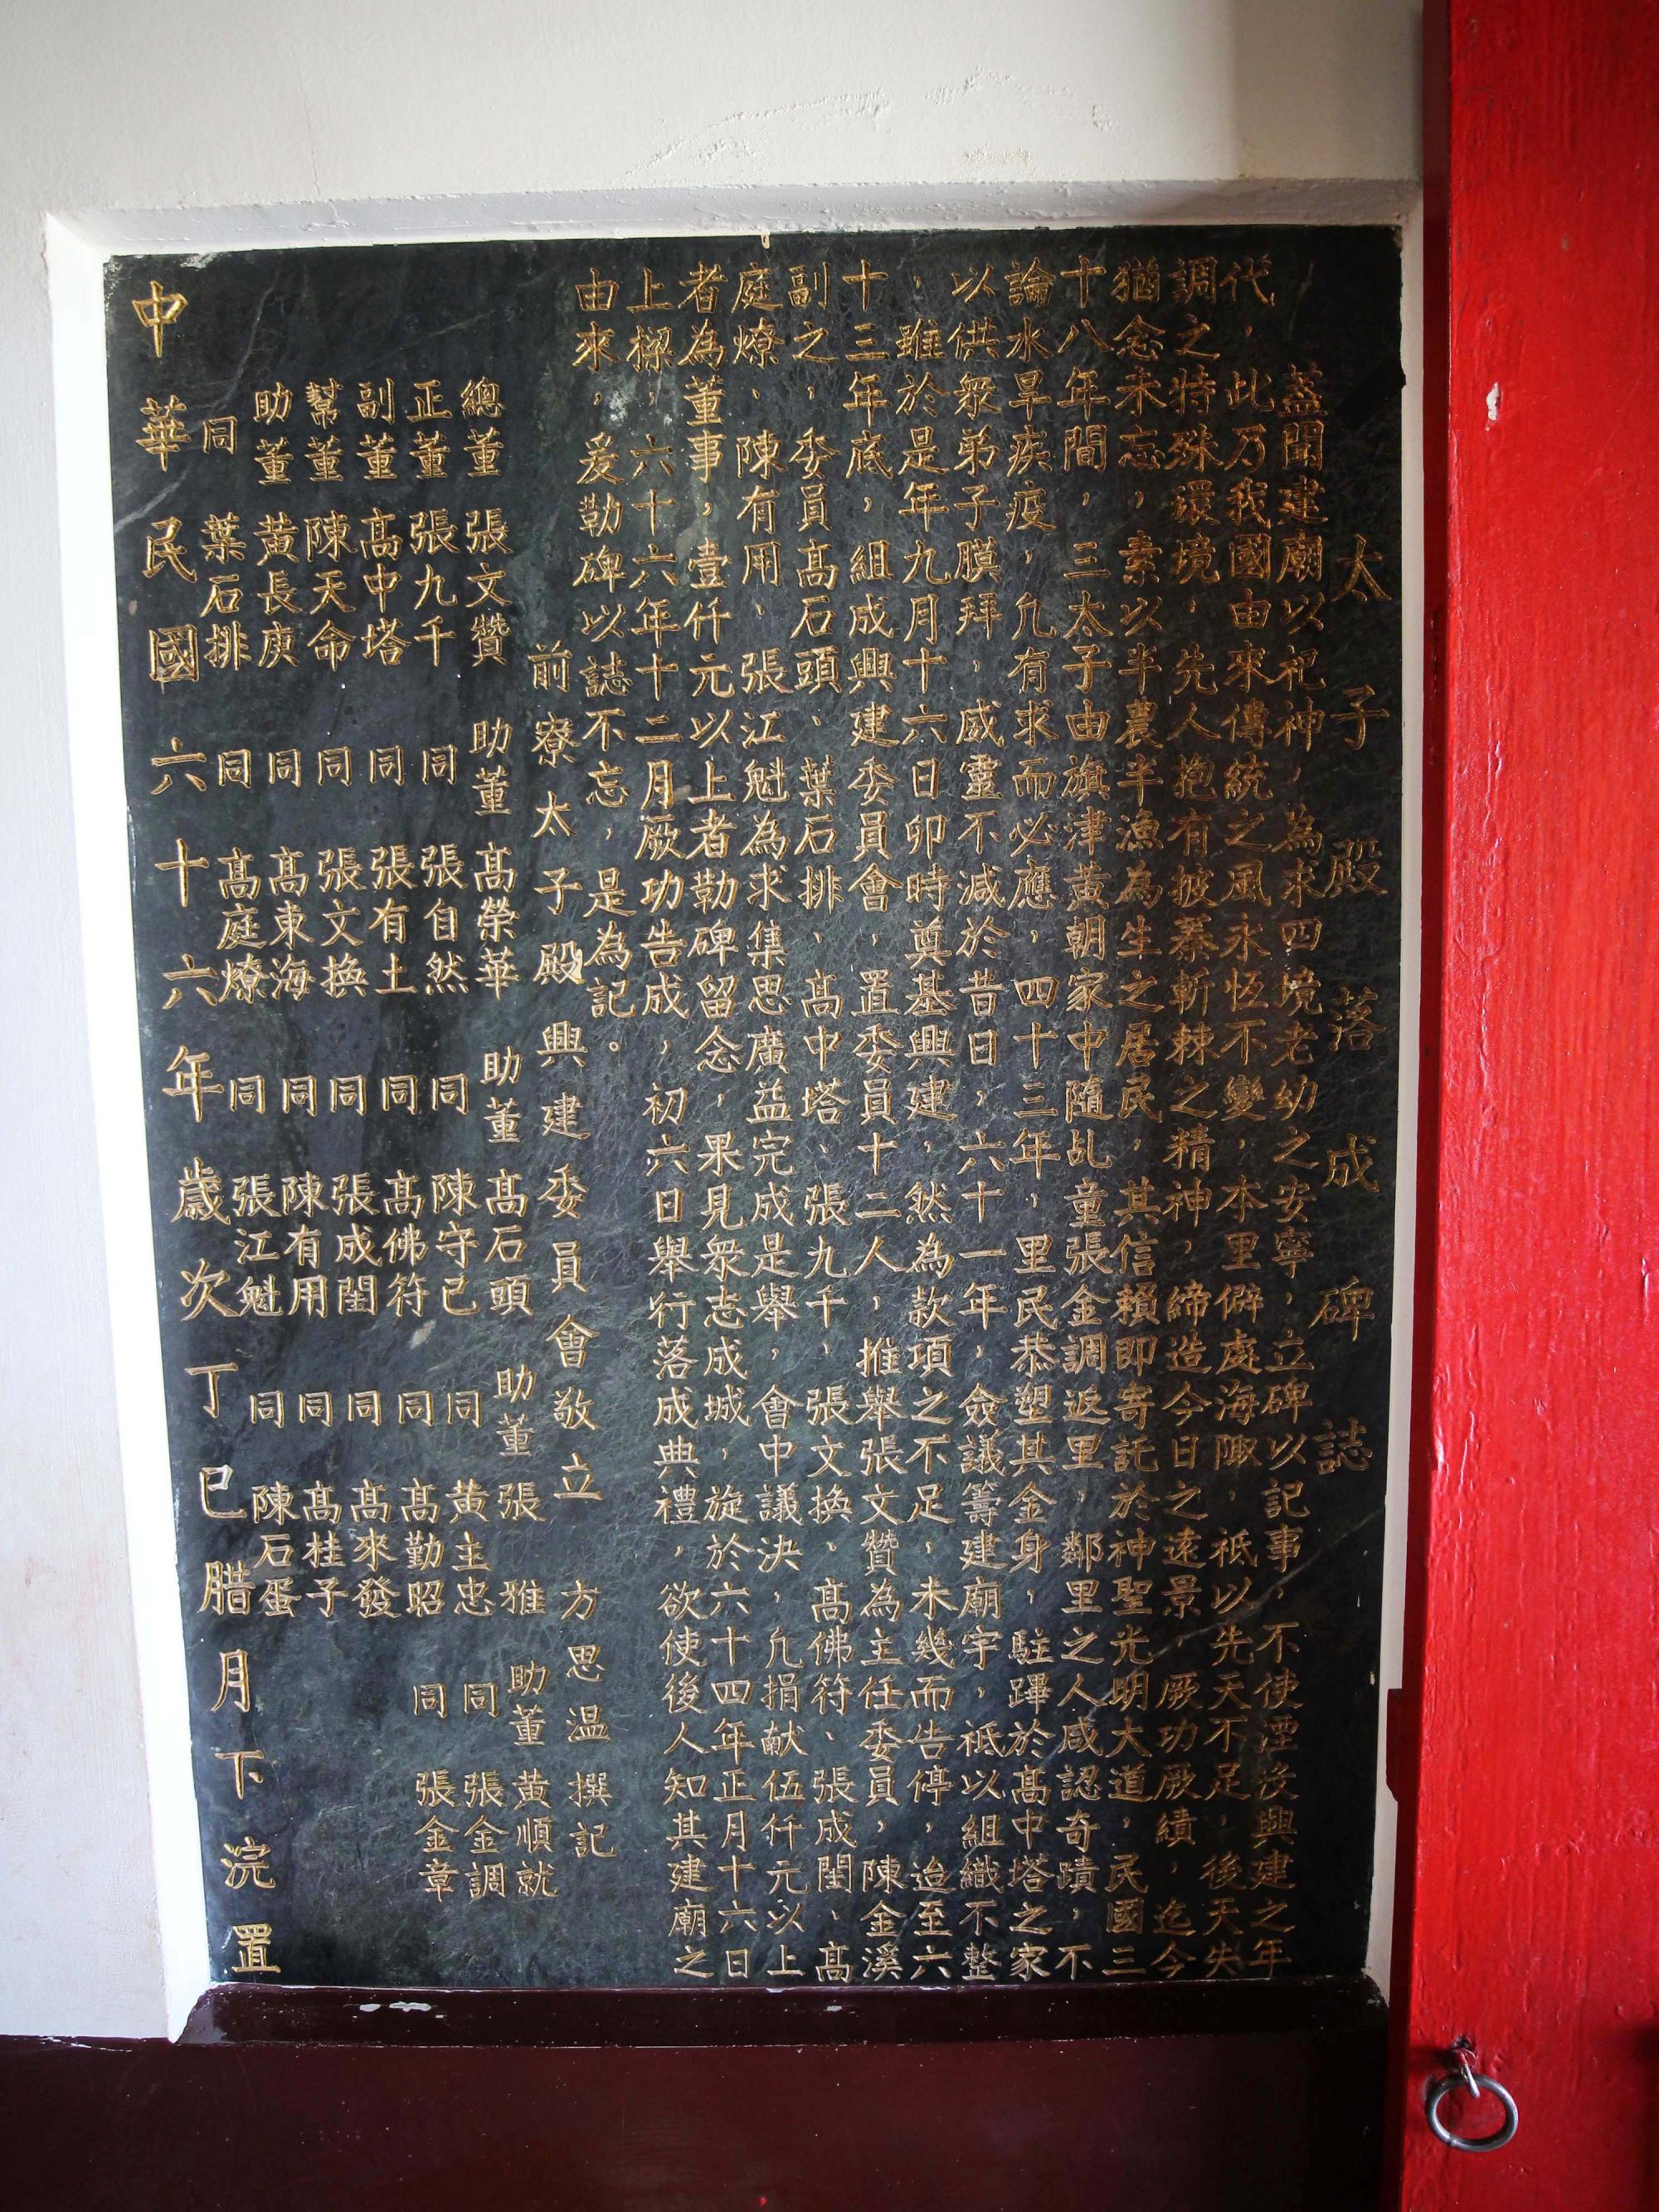 太子殿落成碑誌
蓋聞建廟以祀神，為求四境老幼之安寧，立碑以記事，不使湮沒興建之年
代，此乃我國由來傳統之風永恆不變，本里僻處海陬，祇以先天不足，後天失
調之特殊環境，先人抱有披蓁斬棘之精神，締造今日之遠景，厥功厥績，迄今
猶念未忘，素以半農半漁為生之居民，其信賴即寄託於神聖光明大道，民國三
十八年間，三太子由旗津黃朝家中隨乩童張金調返里，鄰里之人咸認奇蹟，不
論水旱疾疫，凢有求而必應，四十三年，里民恭塑其金身，駐蹕於髙中塔之家
以供衆弟子膜拜，威靈不減於昔日，六十一年，僉議籌建廟宇，祗以組織不整
，雖於是年九月十六日卯時奠基興建，然為款項之不足，未幾而告停，迨至六
十三年底，組成興建委員會，置委員十二人，推舉張文贊為主任委員，陳金溪
副之，委員髙石頭、葉石排、髙中塔、張九千、張文換、髙佛符、張成閨、髙
庭燎、陳有用、張江魁為求集思廣益完成是舉，會中議決，凢捐献伍仟元以上
者為董事，壹仟元以上者勒碑留念，果見衆志成城，旋於六十四年正月十六日
上樑，六十六年十二月厥功告成，初六日舉行落成典禮，欲使後人知其建廟之
由來，爰勒碑以誌不忘，是為記。
前寮太子殿興建委員會敬立 方思温撰記
總董 張文贊 助董 髙榮華 助董 髙石頭 助董 張雅 助董 黃順就
正董 張九千 同 張自然 同 陳守己 同 黃主忠 同 張金調
副董 髙中塔 同 張有土 同 髙佛符 同 髙勤昭 同 張金章
幫董 陳天命 同 張文換 同 張成閨 同 髙來發
助董 黃長庚 同 髙東海 同 陳有用 同 髙桂子
同 葉石排 同 髙庭燎 同 張江魁 同 陳石蛋
中華民國六十六年歲次丁巳腊月下浣置